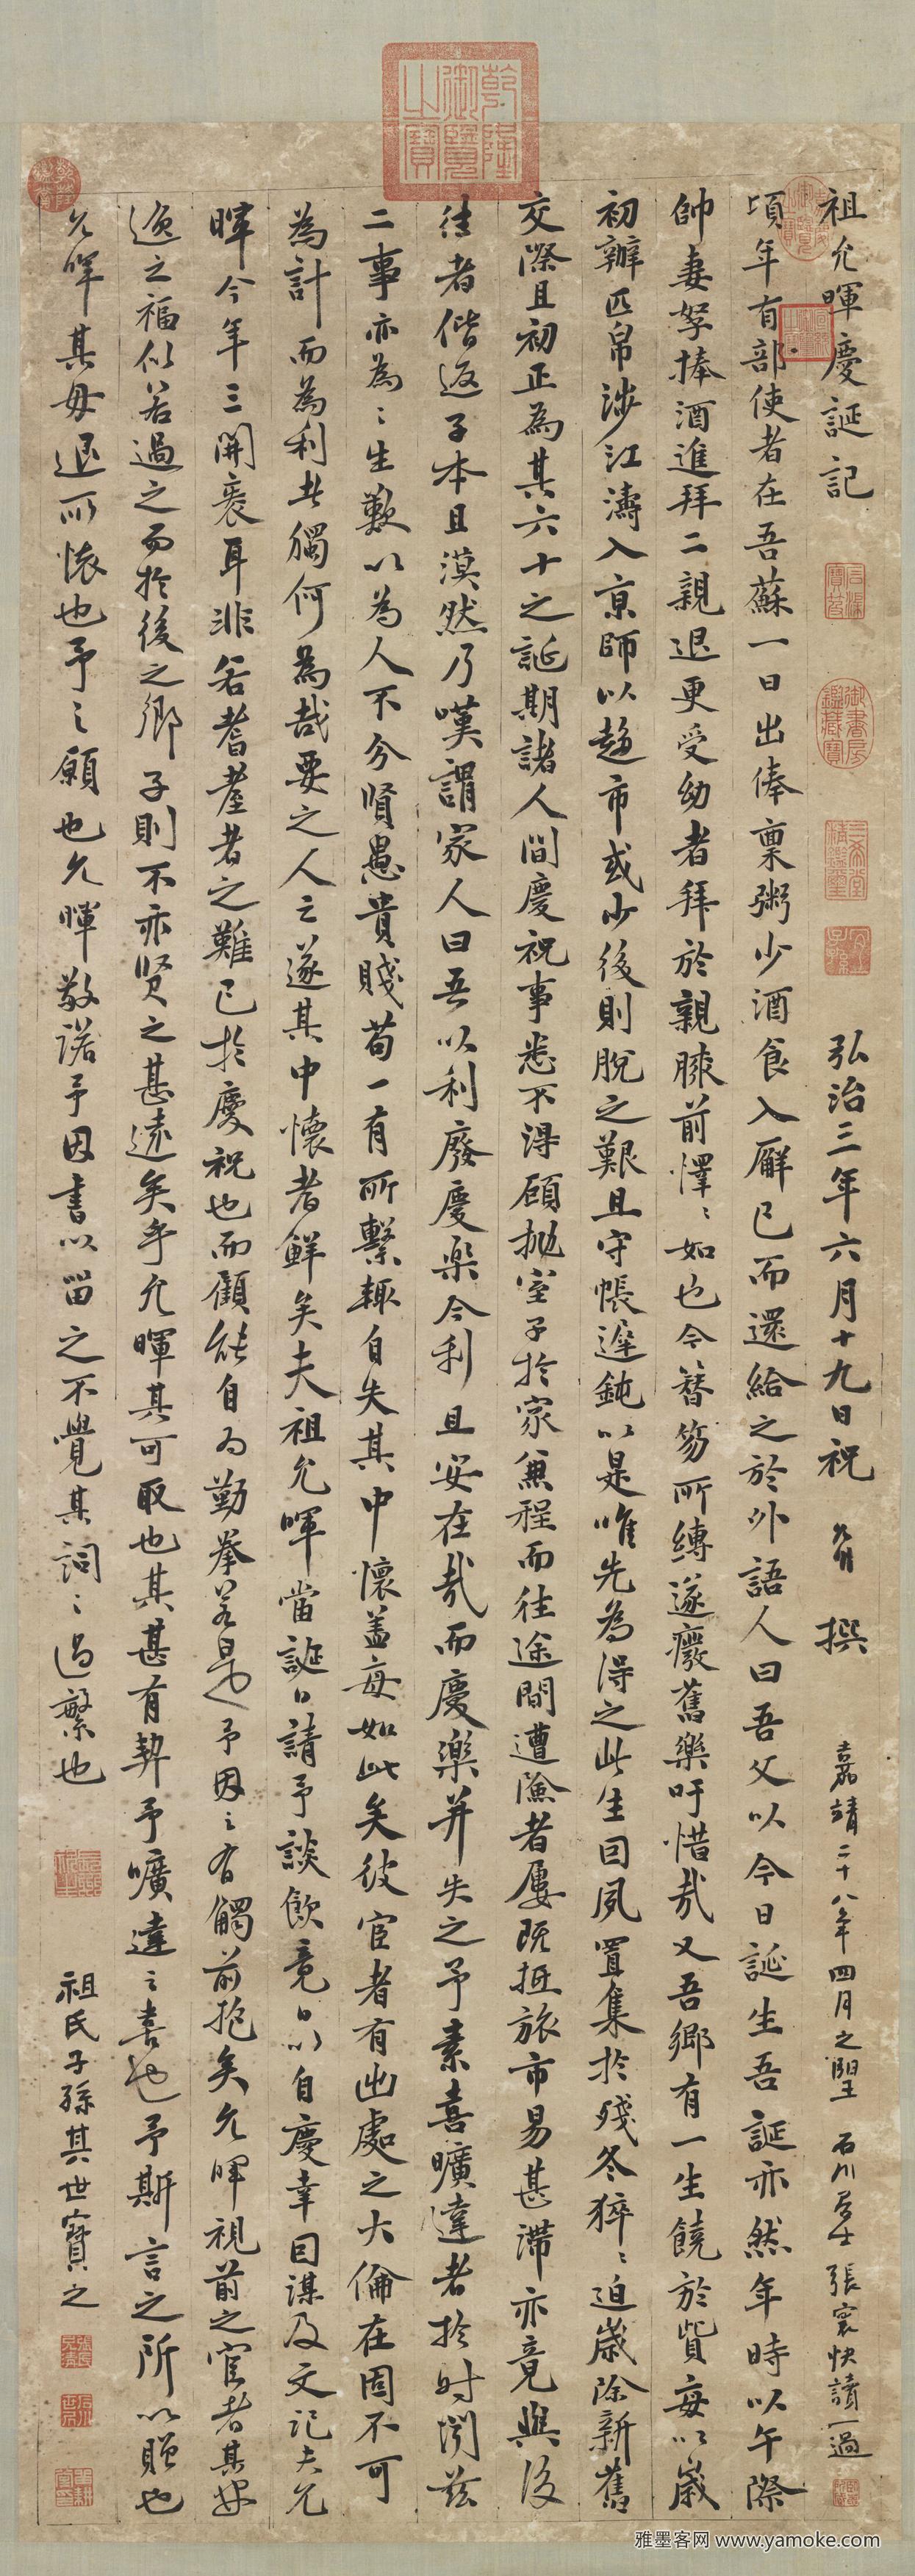 祖允暉慶誕記
弘治三年六月十九日祝 撰
嘉靖二十八年四月之 石川居士張寰快讀一過
頃年有部使者在吾蘇一日出俸稟粥少酒食入廨已而還給之於外語人曰吾父以今日誕生吾誕亦然年時以午際
帥妻孥捧酒進拜二親退更受幼者拜於親膝前懌〻如也今簪笏所縛遂癈舊樂吁惜哉又吾鄉有一生饒於貲每以歲
初辦匹帛涉江濤入京師以趁市或少後則脫之艱且守帳遲鈍以是唯先為得之此生回夙置集於殘冬猝〻迫歲除新舊
交際且初正為其六十之誕期諸人間慶祝事悉不得顧拋室子於家兼程而往途間遭險者屢既抵旅市易甚滯亦竟與後
徃者偕返子本且漠然乃嘆謂家人曰吾以利廢慶樂今利且安在哉而慶樂并失之予素喜曠達者於時閒茲
二事亦為〻生歎以為人不分賢愚貴賤苟一有所繫輒自失其中懷盖每如此矣彼宦者有出處之大倫在固不可
為計而為利者獨何為哉要之人之遂其中懷者鮮矣夫祖允暉當誕日請予談飲竟日以自慶幸因謀及文記夫允
暉今年三開袠耳非若耆耋者之難已於慶祝也而顧能自為勤拳若是予因之有觸前抱矣允暉視前之宦者其安
逸之福似若過之而於後之鄉子則不亦賢之甚遠矣乎允暉其可取也其甚有契予曠達之喜也予斯言之所以贈也
允暉其毋退所懷也予之願也允暉敬諾予因書以留之不覺其詞〻過繁也
祖氏子孫其世寶之
乾隆御覽之寶
石渠寶笈
御書房鑑藏寶
三希堂精鑑璽
宜子孫
雅墨客网 www.yamoke.com